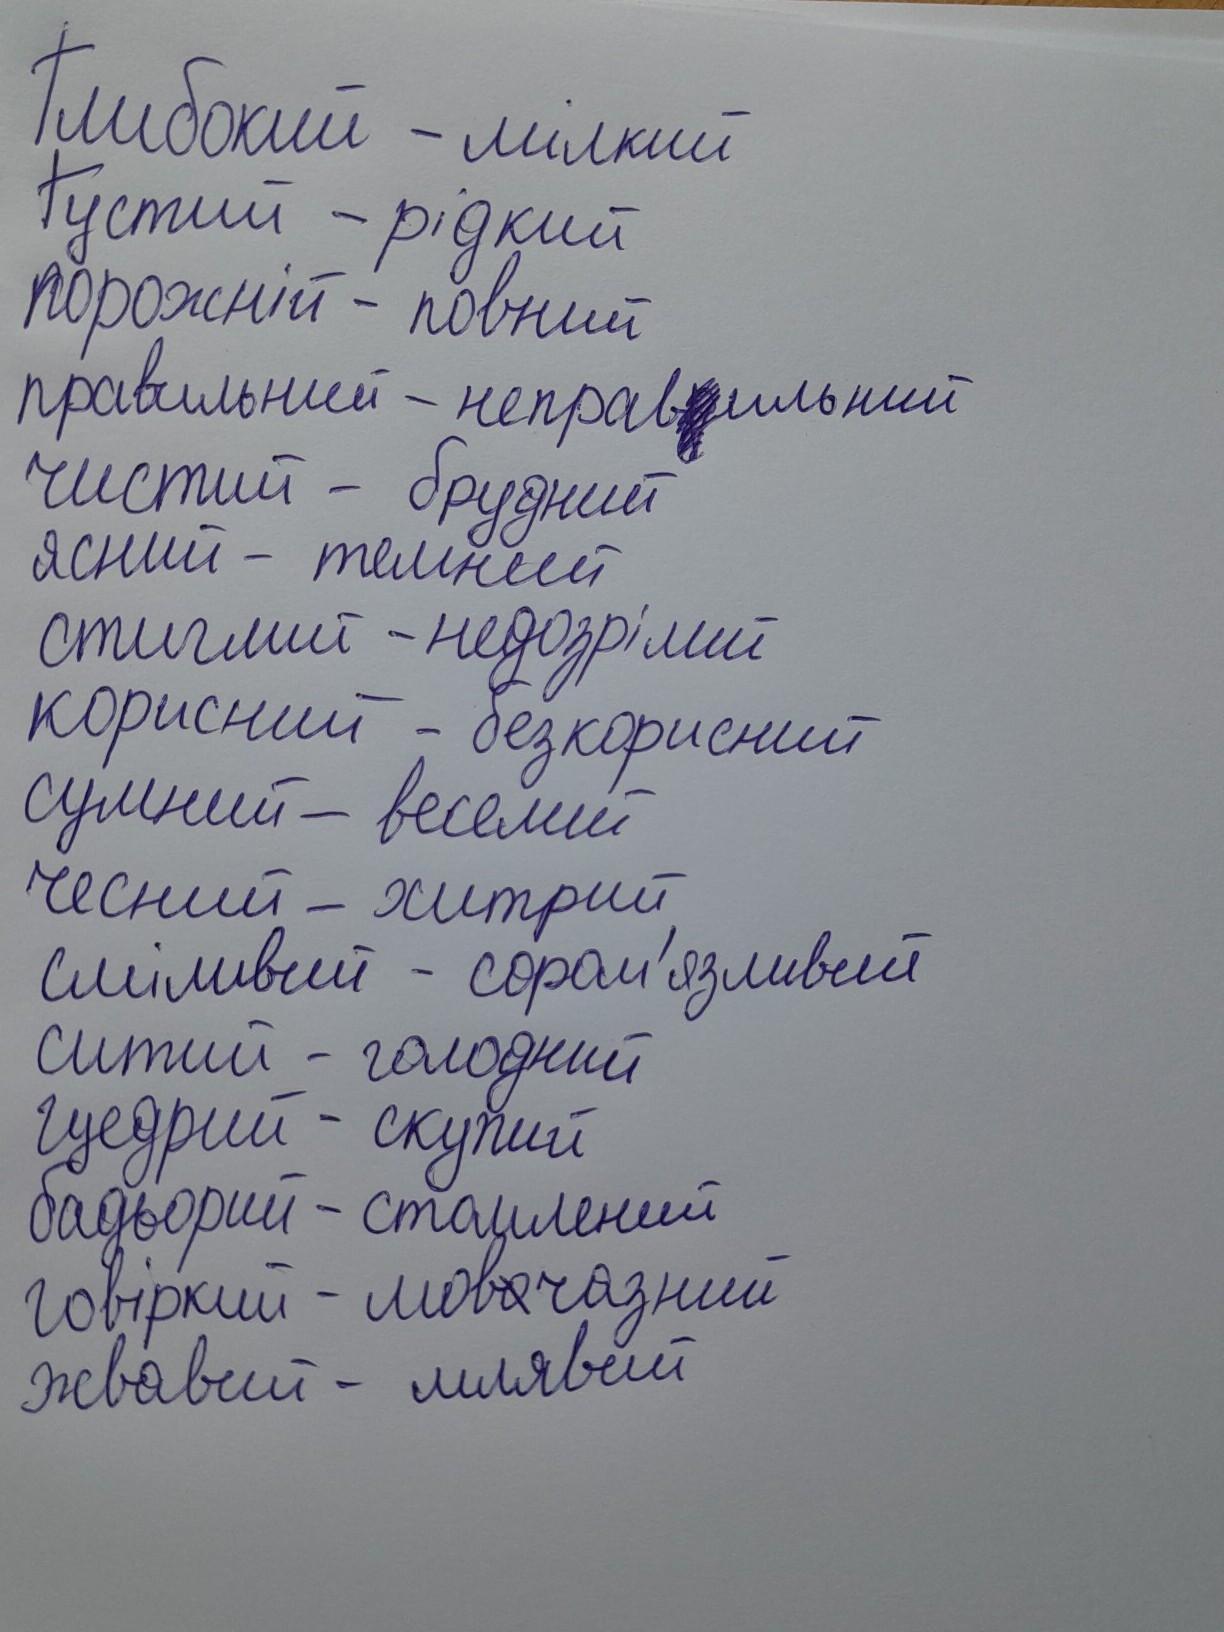 Глибокий - мілкий
Густий - рідкий
порожній - повний
правильний - неправильний
чистий - брудний
ясний - темний
стиглий - недозрілий
корисний - безкорисний
сумний - веселий
чесний - хитрий
сміливий - сором'язливий
ситий - голодний
щедрий - скупий
бадьорий - стомлений
говіркий - мовчазний
жвавий - млявий